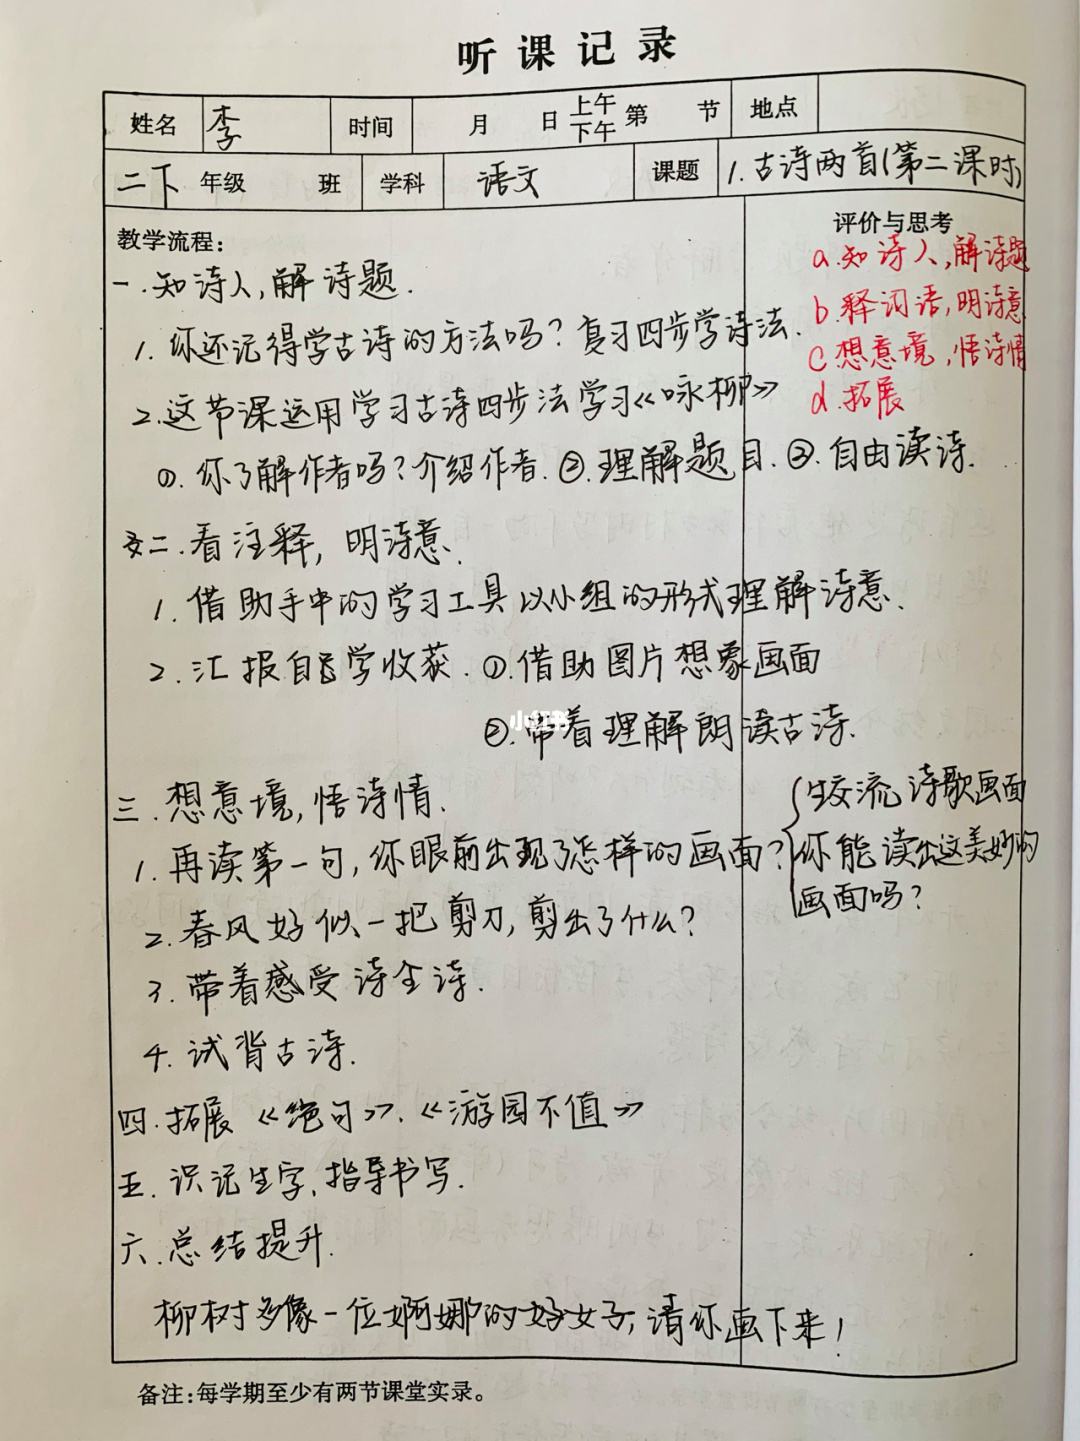 听课记录
姓名 李 时间 月 日 上午 下午 第 节 地点
二下 年级 班 学科 语文 课题 1.古诗两首(第二课时)
教学流程:
评价与思考
a.知诗人,解诗题
b.释词语,明诗意
c.想意境,悟诗情
d.拓展
一.知诗人,解诗题.
1.你还记得学古诗的方法吗?复习四步学诗法.
2.这节课运用学习古诗四步法学习《咏柳》
①.你了解作者吗?介绍作者.②.理解题目.③.自由读诗.
二.看注释,明诗意.
1.借助手中的学习工具以小组的形式理解诗意.
2.汇报自学收获.①.借助图片想象画面
②.带着理解朗读古诗.
小红书
三.想意境,悟诗情.
1.再读第一句,你眼前出现了怎样的画面?
生交流诗歌画面
你能读出这美妙的
画面吗?
2.春风好似一把剪刀,剪出了什么?
3.带着感受诗全诗.
4.试背古诗.
四.拓展《绝句》.《游园不值》
五.识记生字,指导书写.
六.总结提升.
柳树多像一位婀娜的好女子,请你画下来!
备注:每学期至少有两节课堂实录。